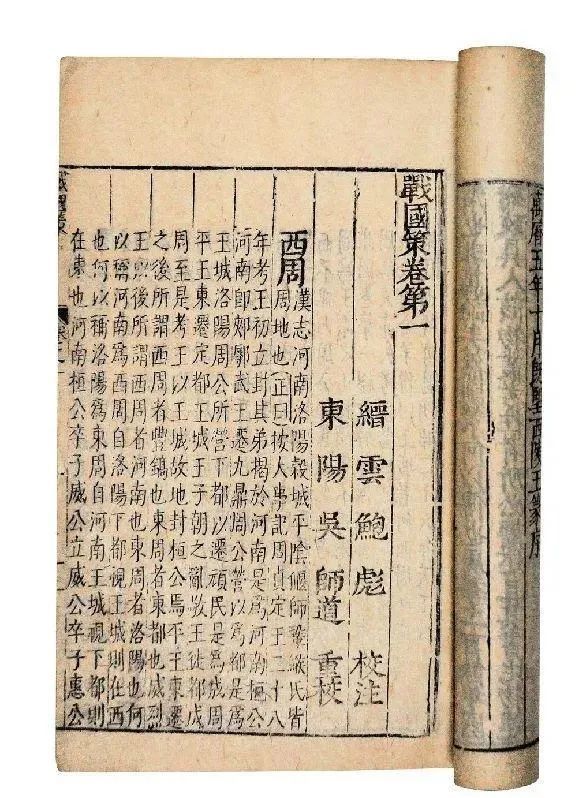 萬曆五年十月 西陵王篆序
戰國策卷第一
縉雲鮑彪 校注
東陽吳師道 重校
西周 漢志河南洛陽穀城平陰偃師鞏緱氏皆
周地也正曰按大事記周貞定王二十八
年考王初立封其弟揭於河南是爲河南桓公
河南卽郟鄏武王遷九鼎周公營以爲都是爲
王城洛陽周公所營下都以遷頑民是爲成周
平王東遷定都王城王子朝之亂敬王徙都成
周至是考王以王城故地封桓公焉平王東遷
之後所謂西周者豐鎬也東周者東都也威烈
王以後所謂西周者河南也東周者洛陽也何
以稱河南爲西周自洛陽下都視王城則在西
也何以稱洛陽爲東周自河南王城視下都則
在東也河南桓公卒子威公立威公卒子惠公
戰國策